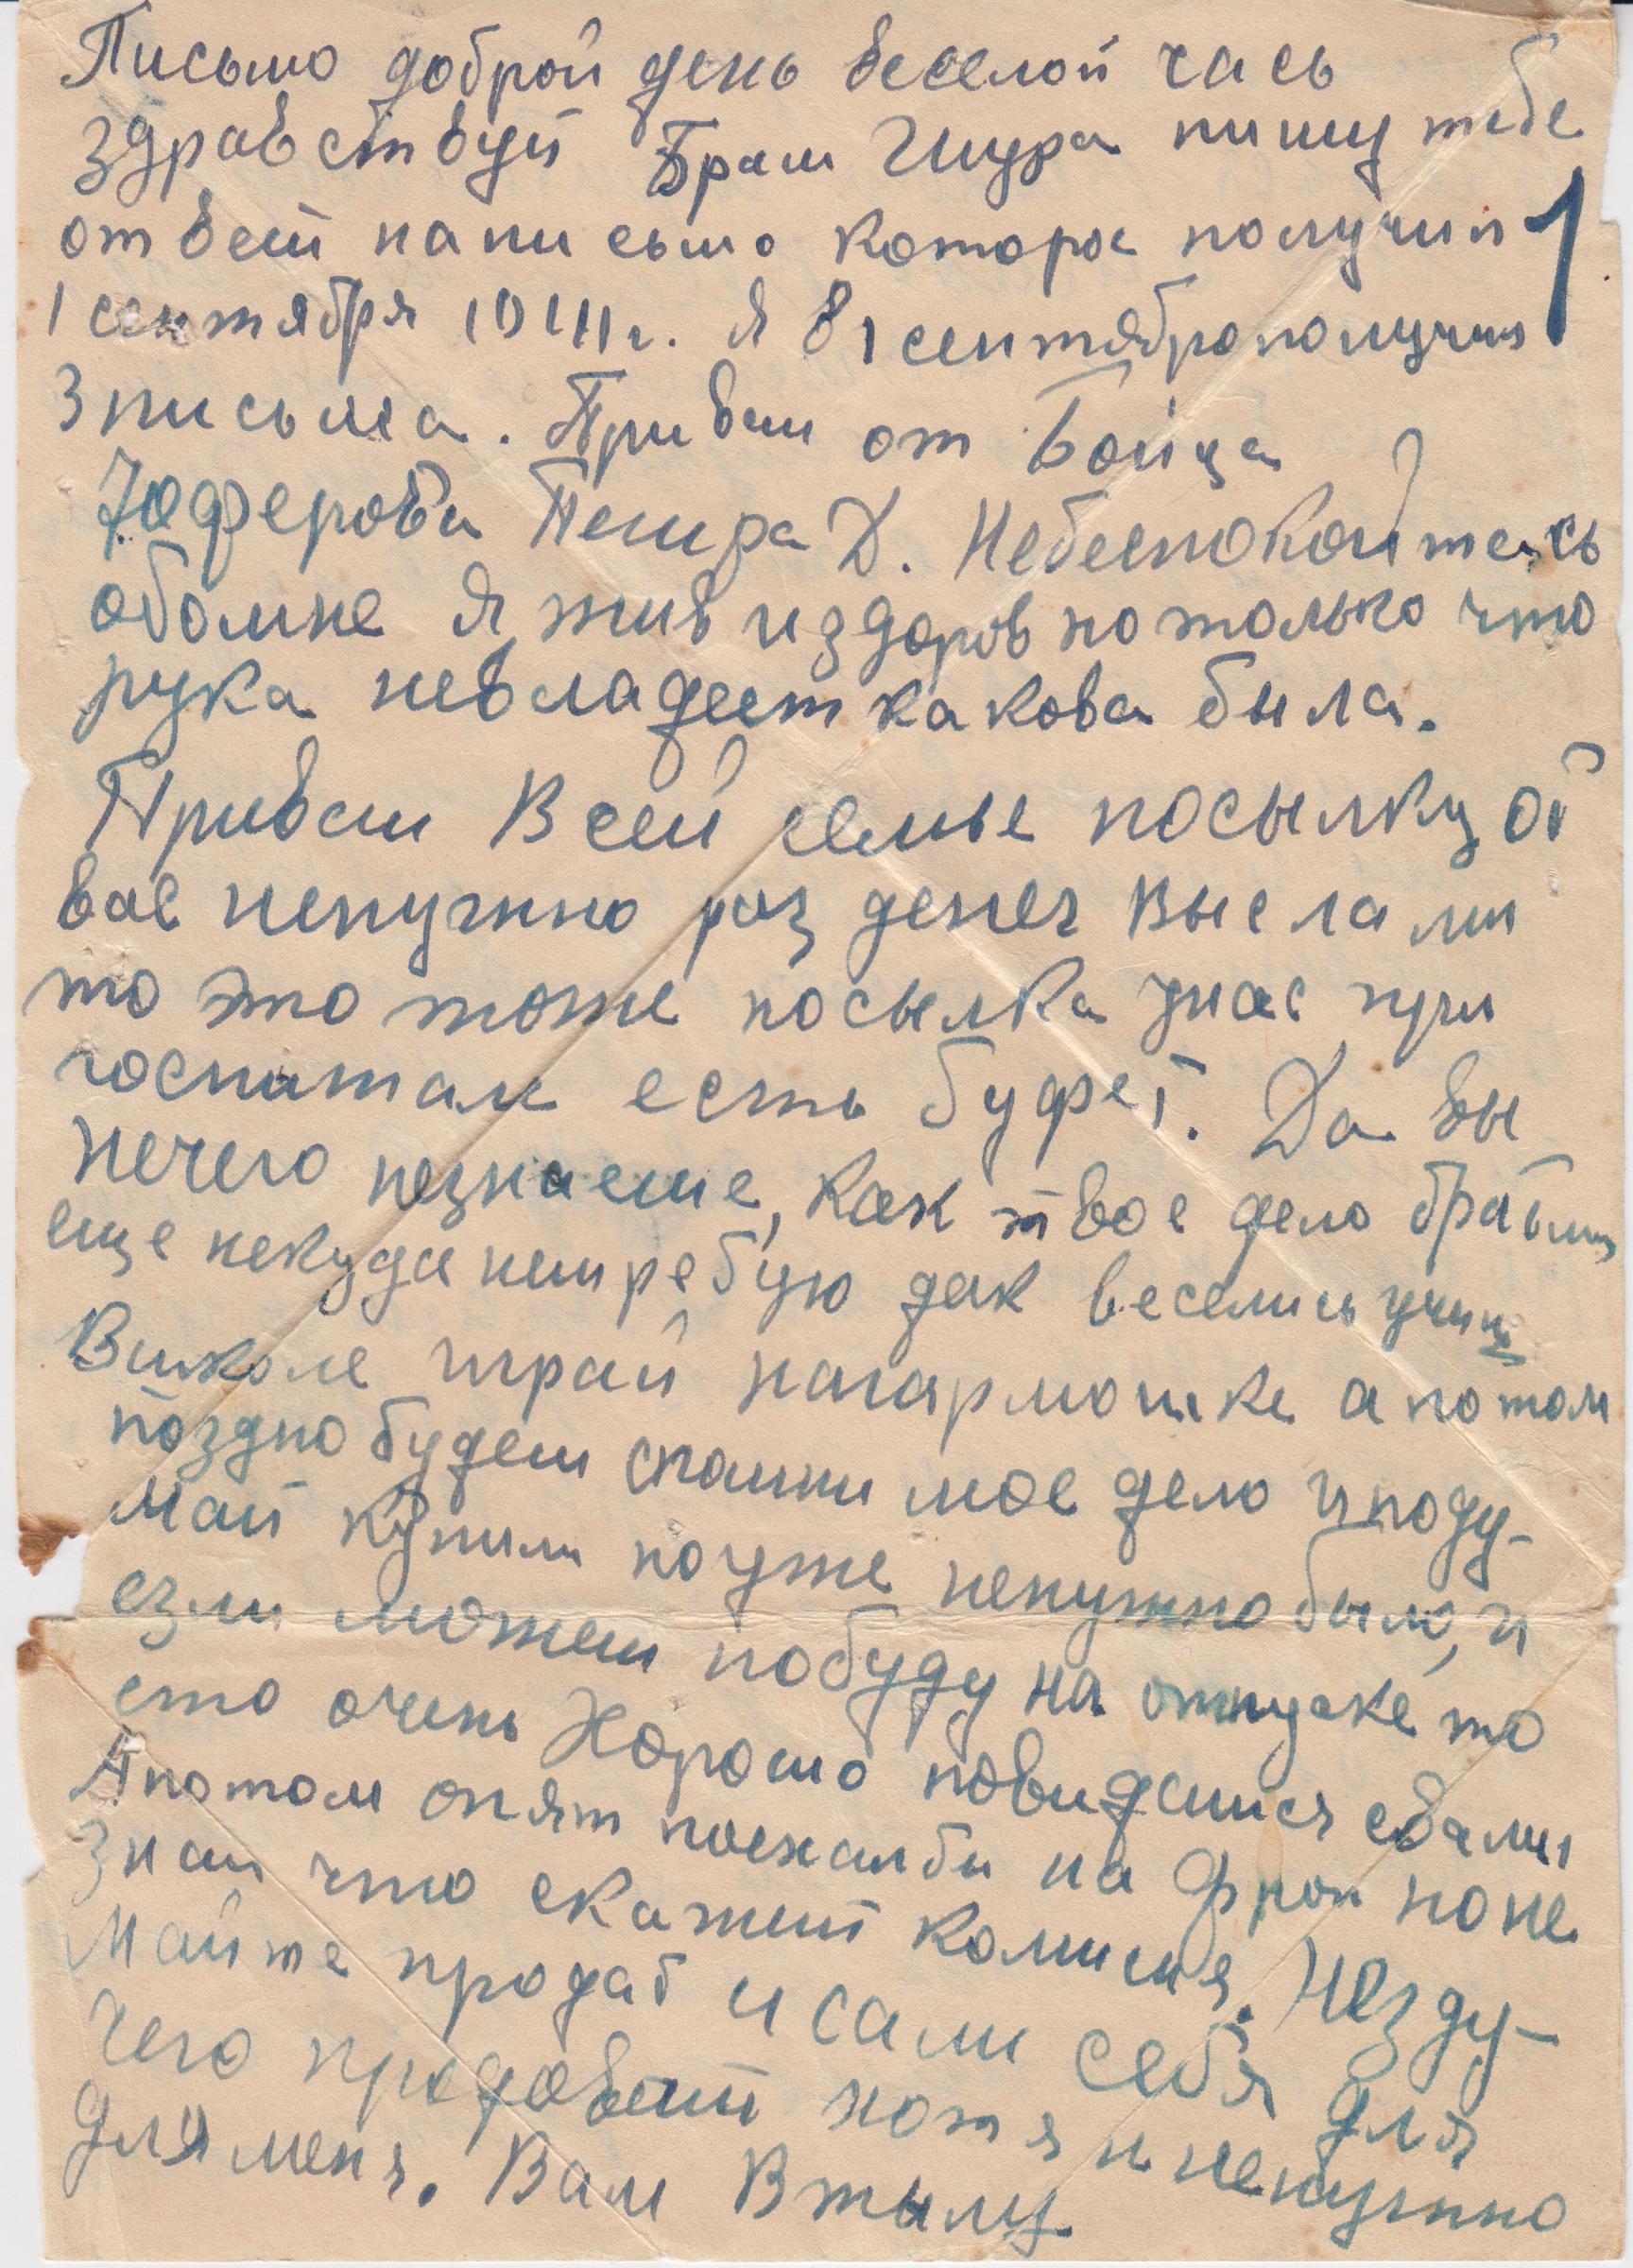 Письмо доброй день веселой чась
Здравствуй Брат Шура пишу тебе
ответ на письмо которое получил 1
1 сентября я в 1 сентябро получил
3 письма. Привет от Бойца
Юферова Петра Д. Небеспокойтесь
обомне Я жив и здоров но только что
рука невладеет какова была.
Привет Всей семье посылку от
вас ненужно раз денег выслали
то это тоже посылка унас при
госпитале есть буфет. Да вы
нечего незнаете, как твое дело брат
еще некуда нетребую дак веселись учись
Вшколе играй нагармошке а потом
поздно будет спомни мое дело иподу-
май купили но уже ненужно было, и
езли может побуду на отпуске то
ето очень Хорошо повидатися свами
Апотом опят поехалбы на фрон но не
знаю что скажит комисия. Незду-
Майте продат и сами себя для
чего продовать хотя и ненужно
для меня. Вам Втылу